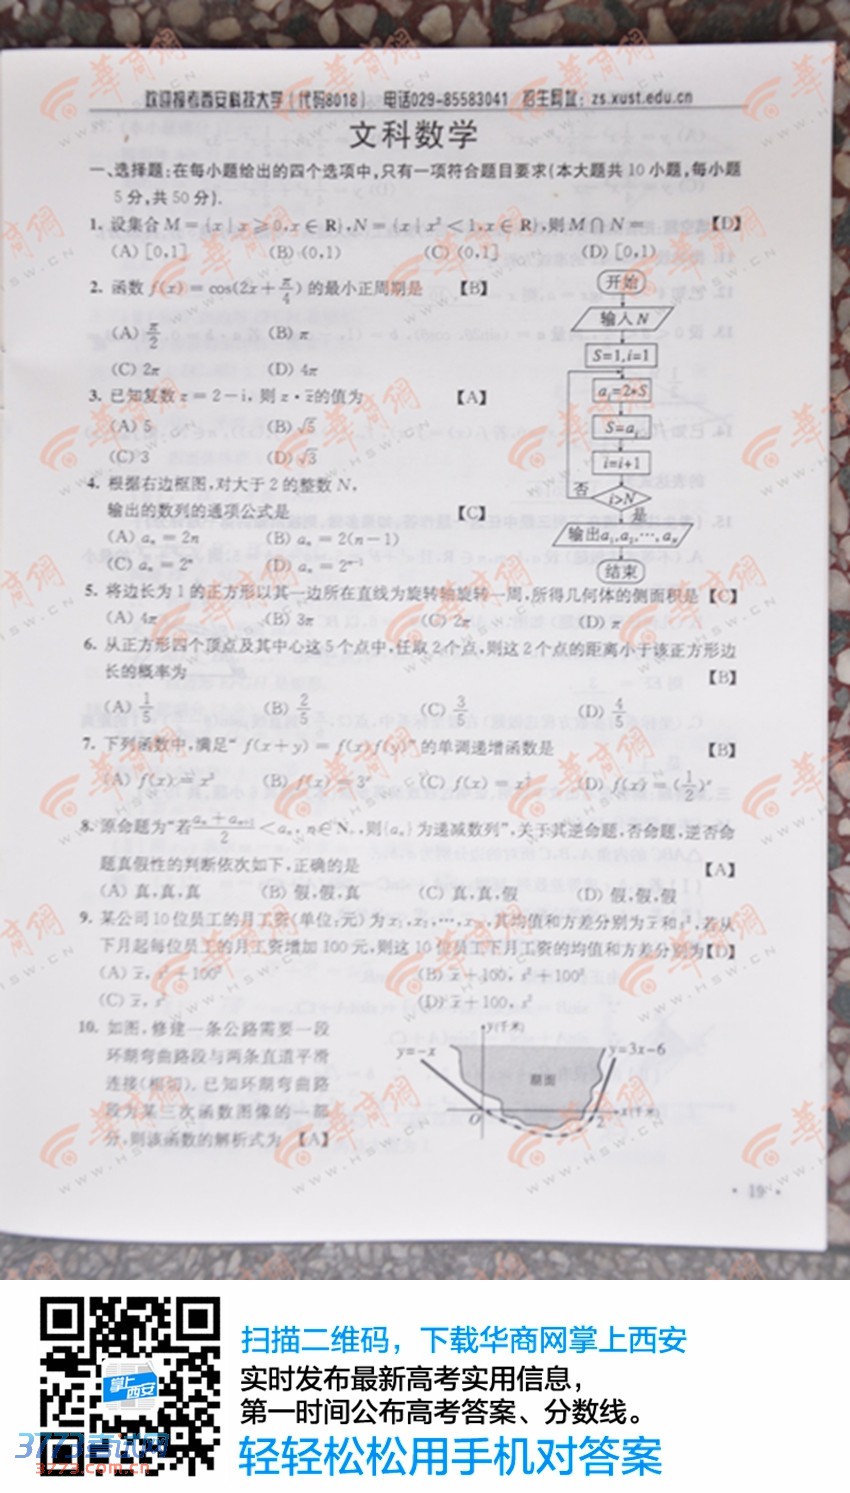 欢迎报考西安科技大学(代码8018) 电话029-85583041 招生网址:zs.xust.edu.cn
文科数学
一、选择题:在每小题给出的四个选项中,只有一项符合题目要求(本大题共10小题,每小题
5分,共50分).
1. 设集合M={x|x≥0,x∈R},N={x|x²<1,x∈R},则M∩N= 【D】
(A) [0,1] (B) (0,1) (C) (0,1] (D) [0,1)
2. 函数 f(x)=cos(2x+π/4)的最小正周期是 【B】
(A) π/2 (B) π
(C) 2π (D) 4π
3. 已知复数z=2-i,则z·z̄的值为 【A】
(A) 5 (B) √5
(C) 3 (D) √3
4. 根据右边框图,对大于2的整数N,
输出的数列的通项公式是 【C】
(A) aₙ=2n (B) aₙ=2(n-1)
(C) aₙ=2ⁿ (D) aₙ=2ⁿ⁻¹
开始
输入N
S=1,i=1
aᵢ=2*S
S=aᵢ
i=i+1
否
i>N
是
输出a₁,a₂,…,aₙ
结束
5. 将边长为1的正方形以其一边所在直线为旋转轴旋转一周,所得几何体的侧面积是【C】
(A) 4π (B) 3π (C) 2π (D) π
6. 从正方形四个顶点及其中心这5个点中,任取2个点,则这2个点的距离小于该正方形边
长的概率为 【B】
(A) 1/5 (B) 2/5 (C) 3/5 (D) 4/5
7. 下列函数中,满足“f(x+y)=f(x)f(y)”的单调递增函数是 【B】
(A) f(x)=x³ (B) f(x)=3ˣ (C) f(x)=x^½ (D) f(x)=(1/2)ˣ
8. 原命题为“若(aₙ+aₙ₊₁)/2<aₙ,n∈N₊,则{aₙ}为递减数列”,关于其逆命题,否命题,逆否命
题真假性的判断依次如下,正确的是 【A】
(A) 真,真,真 (B) 假,假,真 (C) 真,真,假 (D) 假,假,假
9. 某公司10位员工的月工资(单位:元)为x₁,x₂,…,x₁₀,其均值和方差分别为x̄和s²,若从
下月起每位员工的月工资增加100元,则这10位员工下月工资的均值和方差分别为【D】
(A) x̄,s²+100² (B) x̄+100,s²+100²
(C) x̄,s² (D) x̄+100,s²
10. 如图,修建一条公路需要一段
环湖弯曲路段与两条直道平滑
连接(相切).已知环湖弯曲路
段为某三次函数图像的一部
分,则该函数的解析式为 【A】
y(千米)
y=-x
y=3x-6
湖面
O
2
x(千米)
· 19 ·
扫描二维码,下载华商网掌上西安
实时发布最新高考实用信息,
第一时间公布高考答案、分数线。
轻轻松松用手机对答案
掌上西安
3773考试网
3773.com.cn
华商网
WWW.HSW.CN